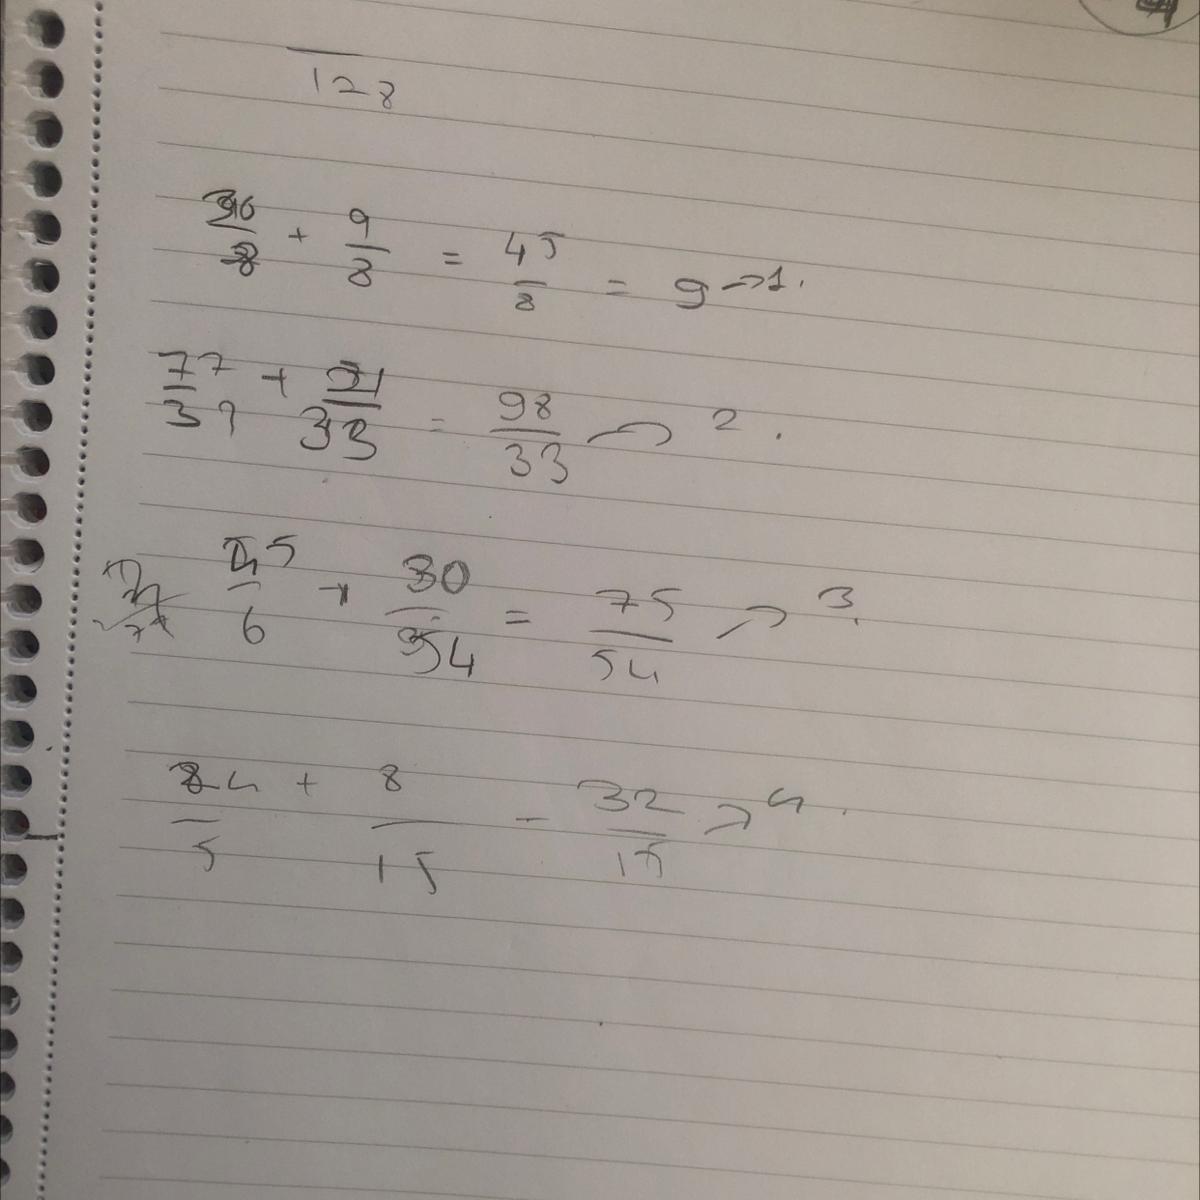 128
36/8 + 9/8 = 45/8 = 9 → 1.
77/39 + 21/33 = 98/33 → 2.
45/6 + 30/54 = 75/54 → 3.
24/5 + 8/15 = 32/15 → 4.